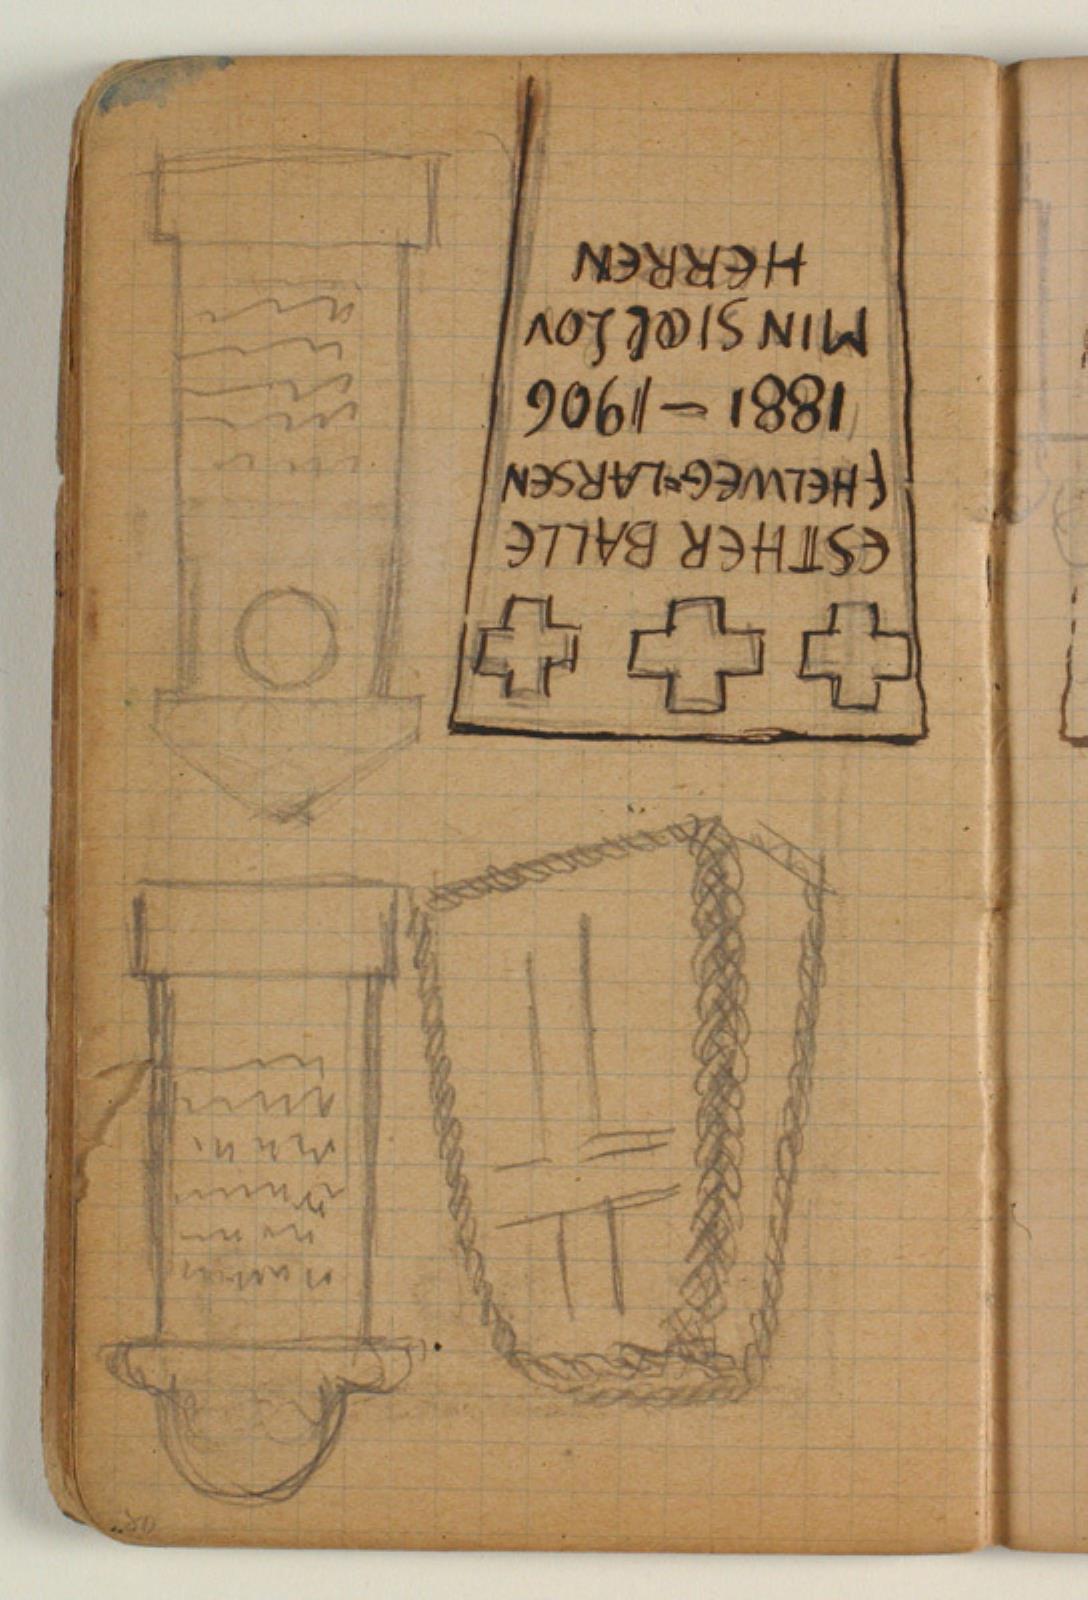 ESTHER BALLE
FHELWEG=LARSEN
1881 – 1906
MIN SIÆL LOV
HERREN